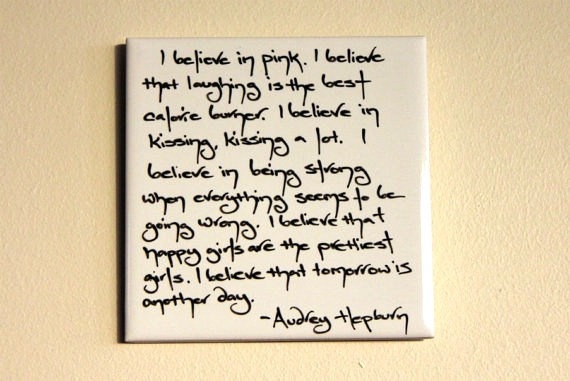 I believe in pink. I believe
that laughing is the best
calorie burner. I believe in
kissing, kissing a lot. I
believe in being strong
when everything seems to be
going wrong. I believe that
happy girls are the prettiest
girls. I believe that tomorrow is
another day.
-Audrey Hepburn